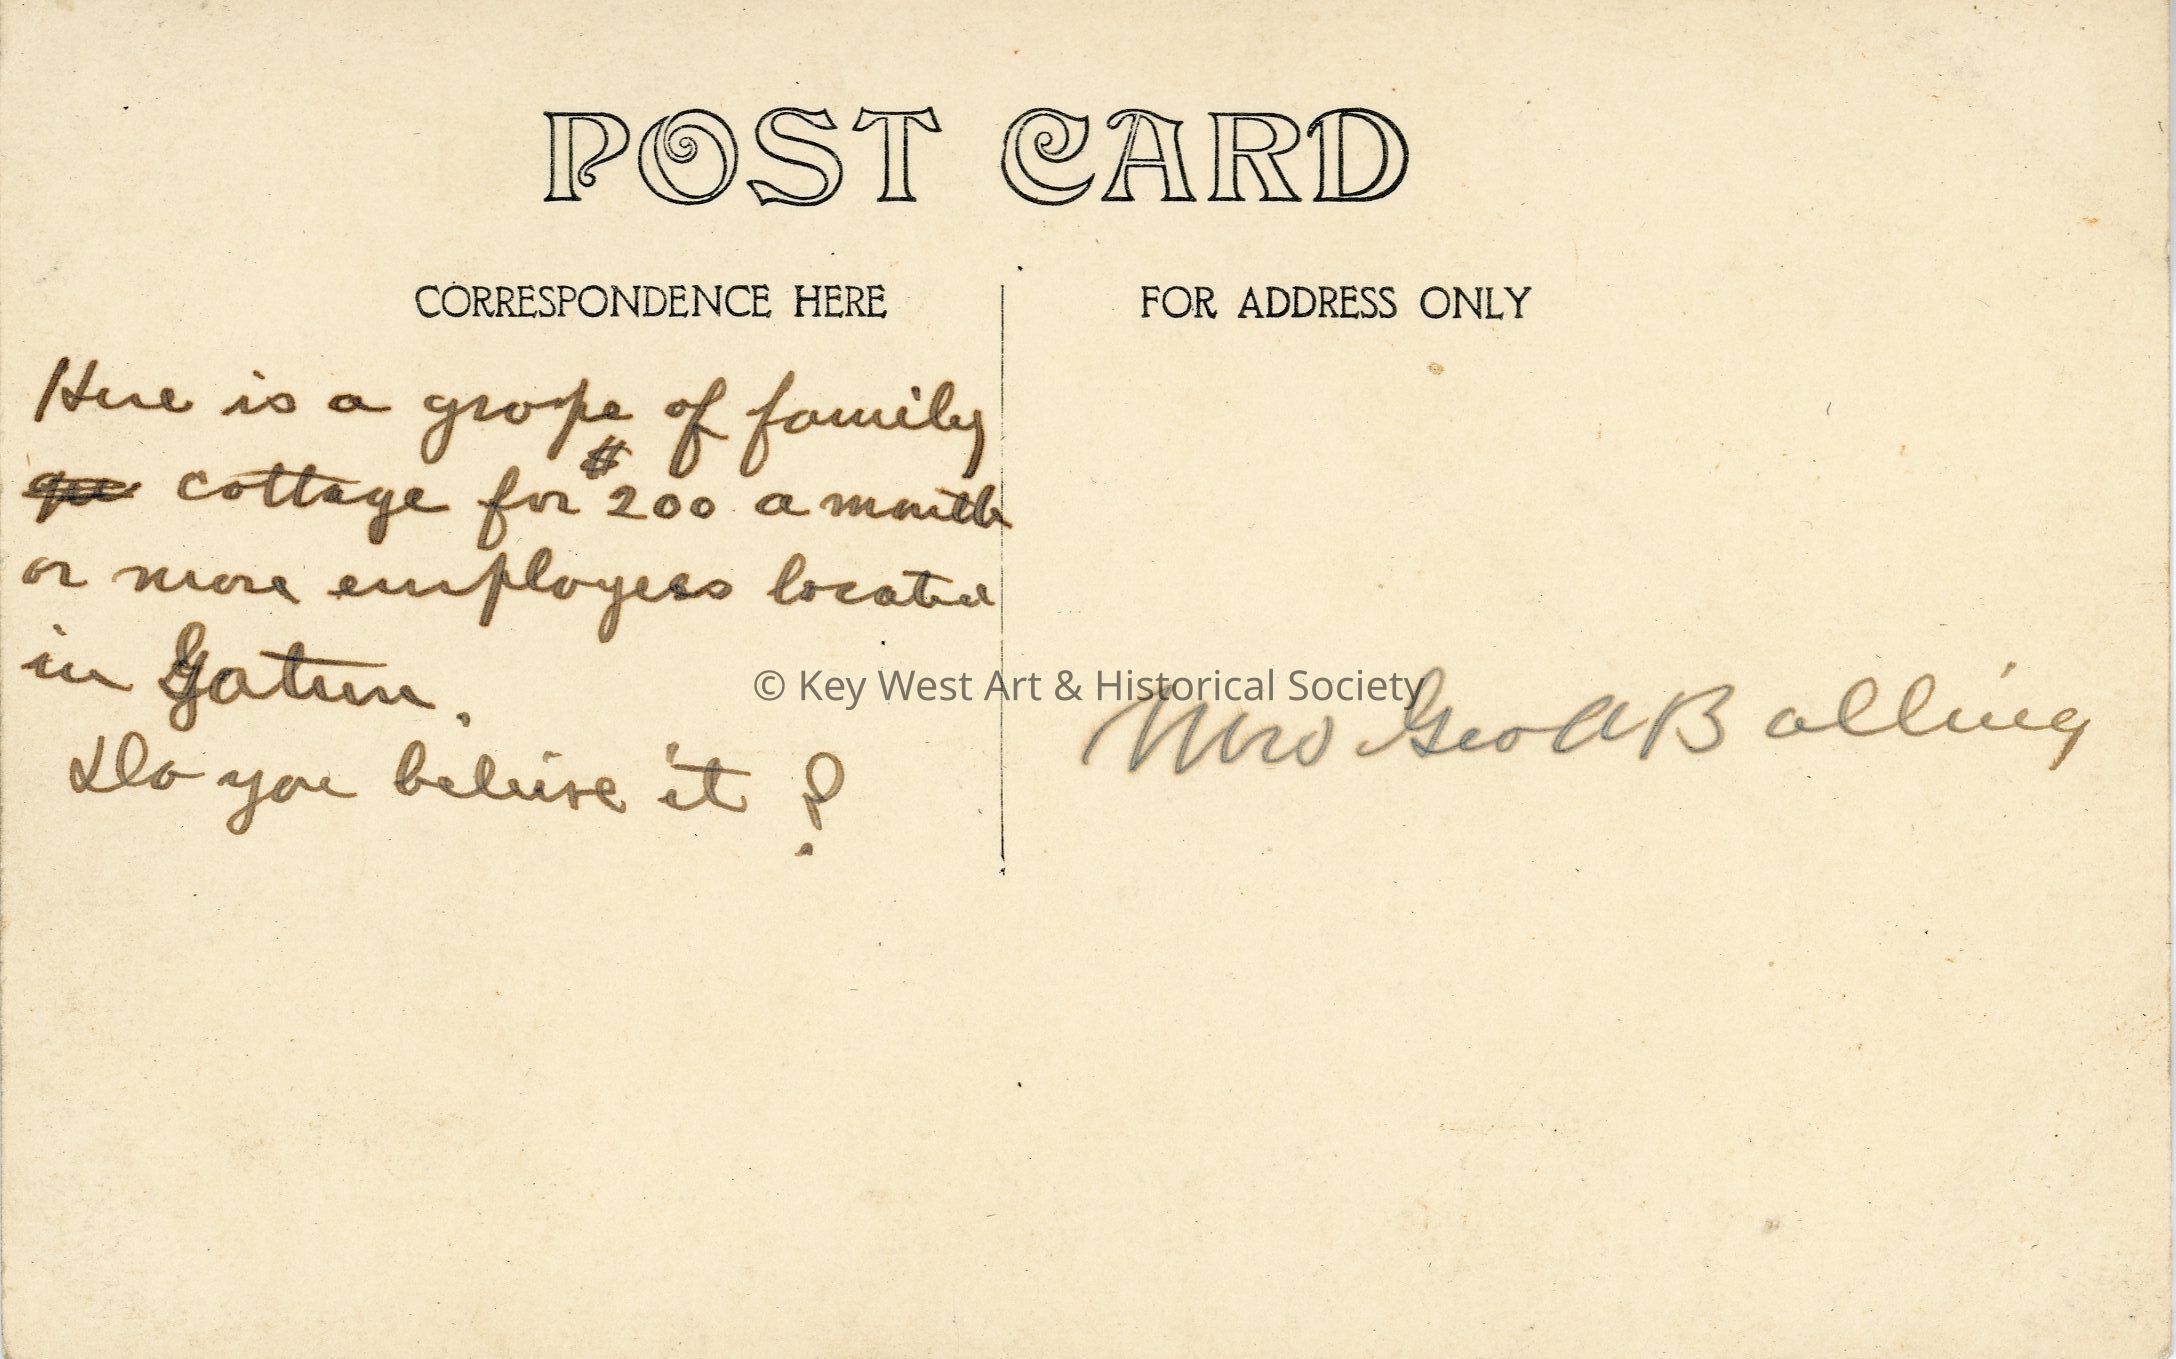 POST CARD
CORRESPONDENCE HERE
FOR ADDRESS ONLY
Here is a grope of family
cottage for $200 a month
or more employees located
in Gatun.
Do you beleive it?
© Key West Art & Historical Society
Mrs Geo A Bolling